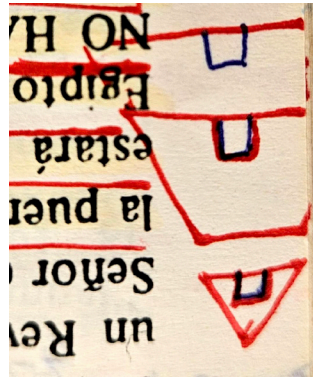 un Rey
Señor
la puer
estará
Egipto
NO HA